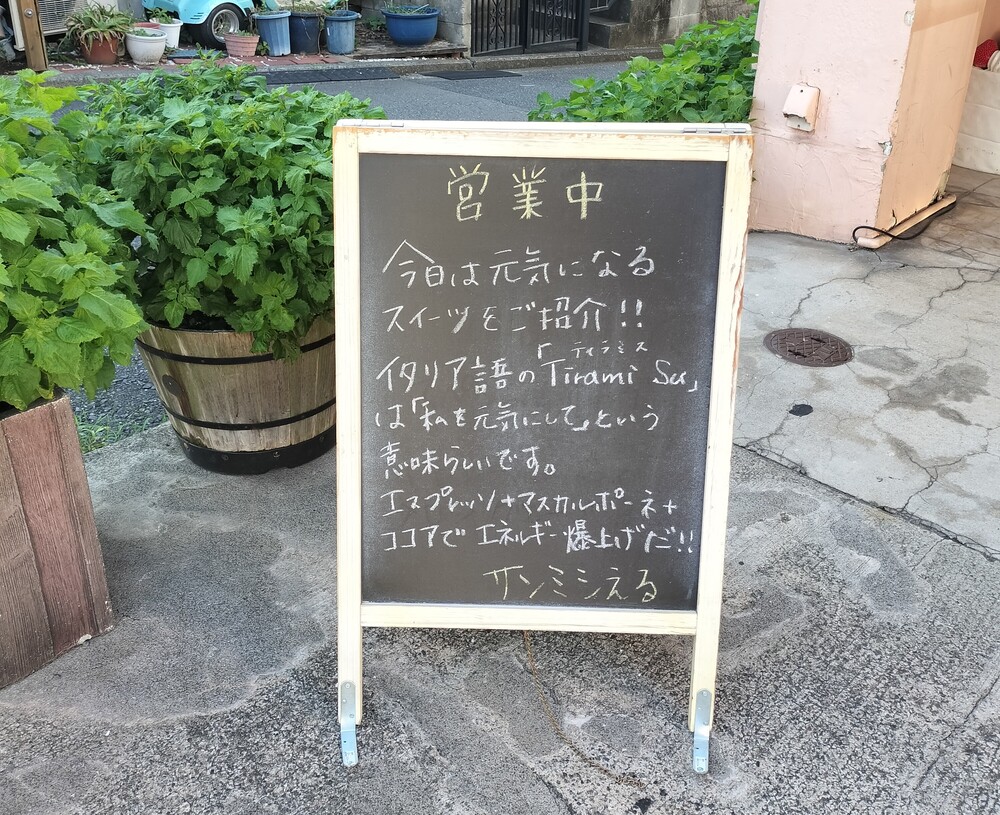 営業中
今日は元気になる
スイーツをご紹介!!
ティラミス
イタリア語の「Tirami Su」
は「私を元気にして」という
意味らしいです。
エスプレッソ+マスカルポーネ+
ココアでエネルギー爆上げだ!!
サンミシえる